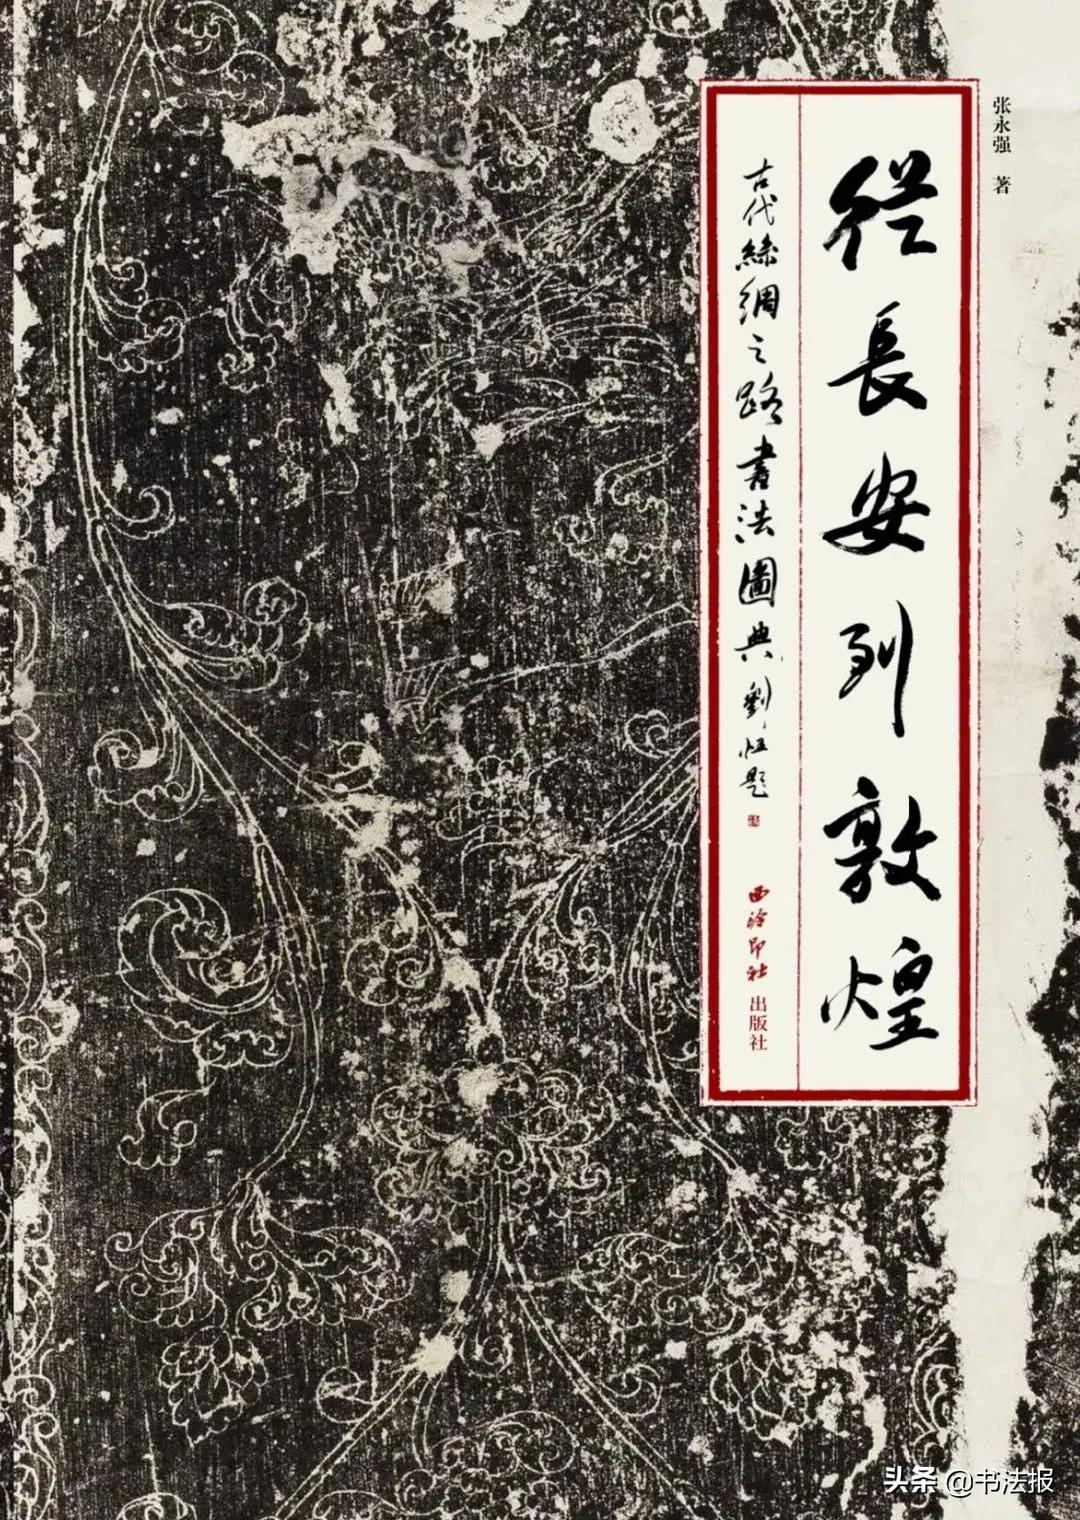 张永强 著
從長安到敦煌
古代絲綢之路書法圖典 劉恒題
西泠印社出版社
头条 @书法报